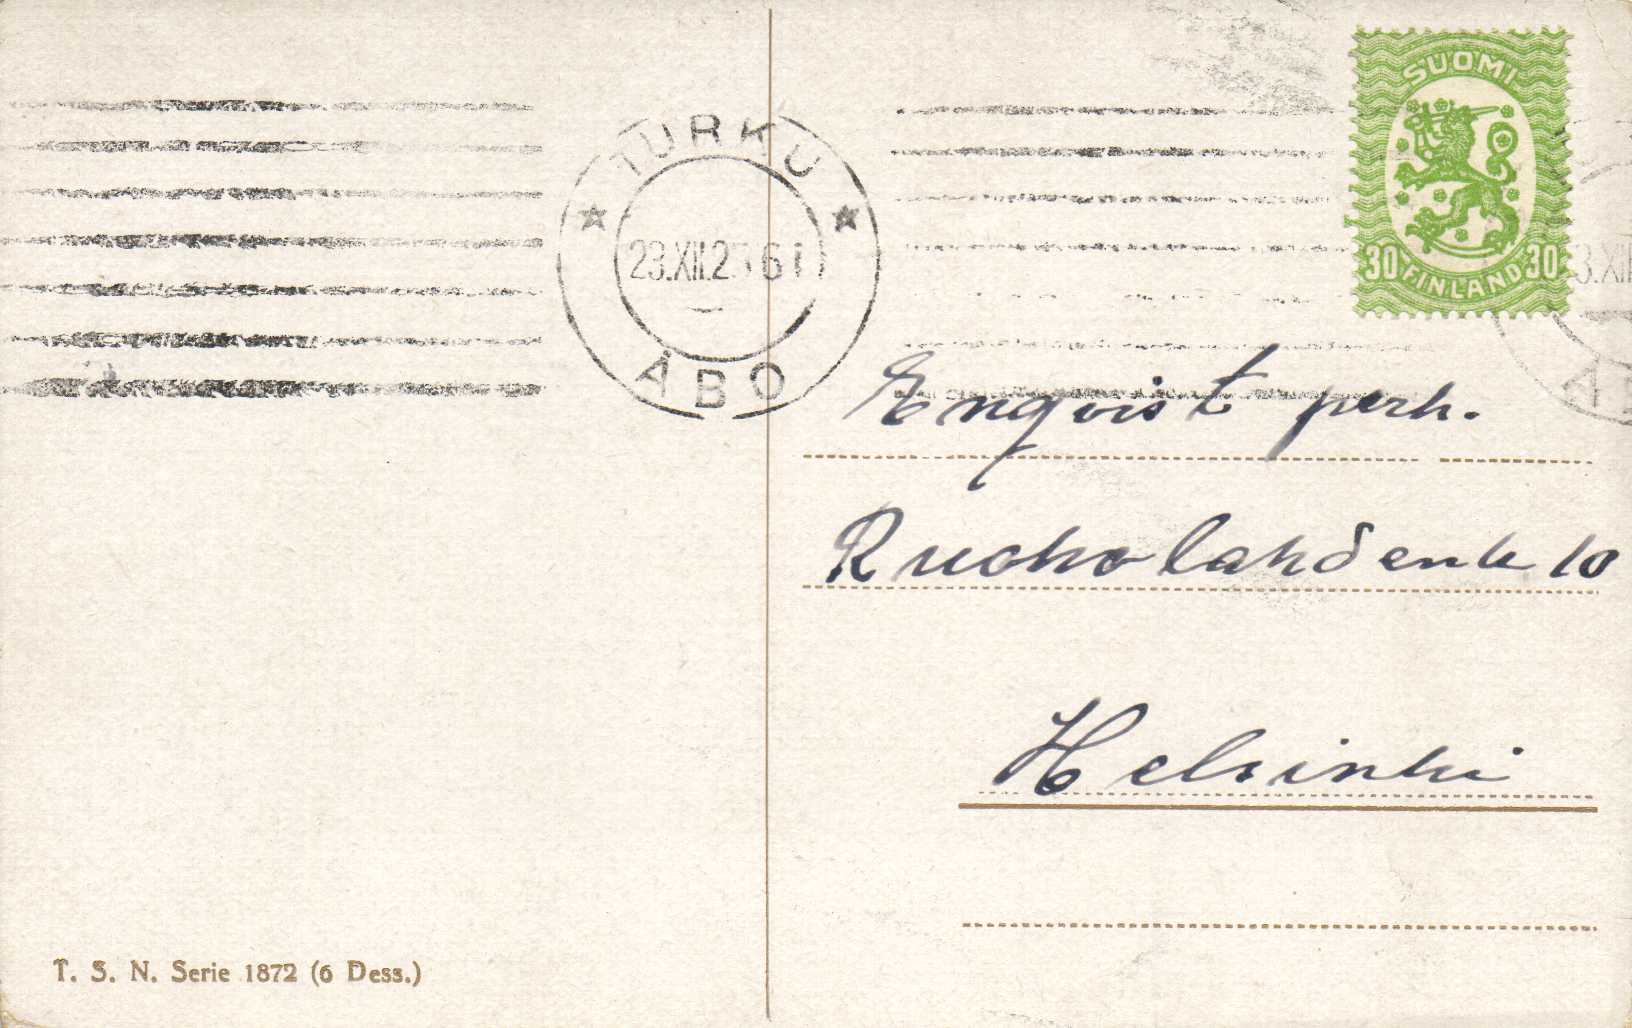 SUOMI
30 FINLAND 30
TURKU
23.XII.2 61
ÅBO
3.XII
Å
Enqvist perh.
Ruoholahdenk 10
Helsinki
T. S. N. Serie 1872 (6 Dess.)